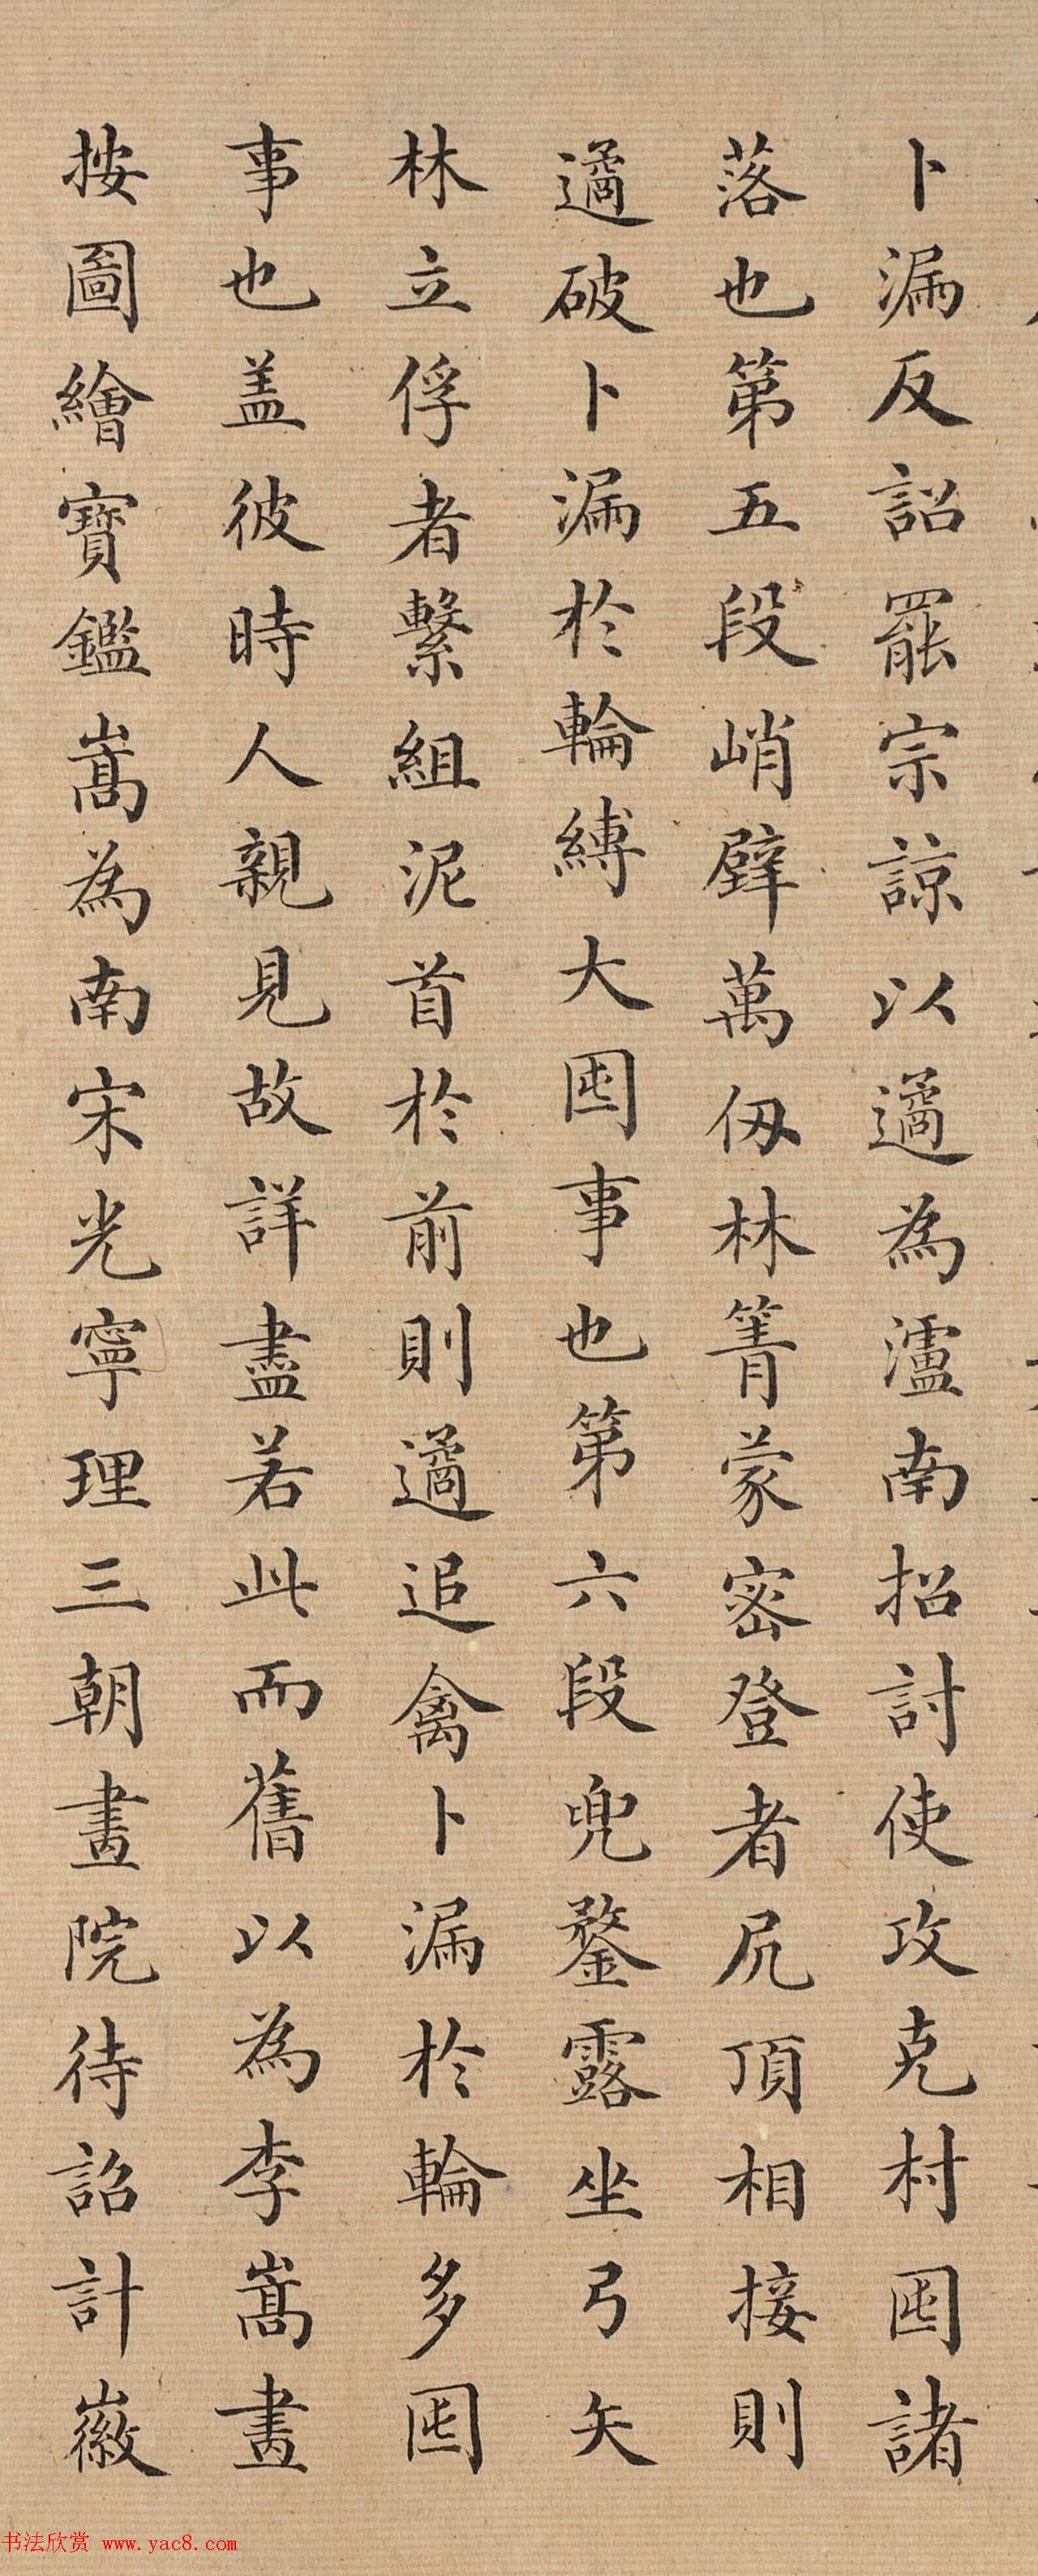 卜漏反詔罷宗諒以遹為瀘南招討使攻克村囤諸
落也第五段峭壁萬仭林箐蒙密登者尻頂相接則
遹破卜漏於輪縛大囤事也第六段兜鍪露坐弓矢
林立俘者繫組泥首於前則遹追禽卜漏於輪多囤
事也盖彼時人親見故詳盡若此而舊以為李嵩畫
按圖繪寶鑑嵩為南宋光寧理三朝畫院待詔計徽
书法欣赏 www.yac8.com